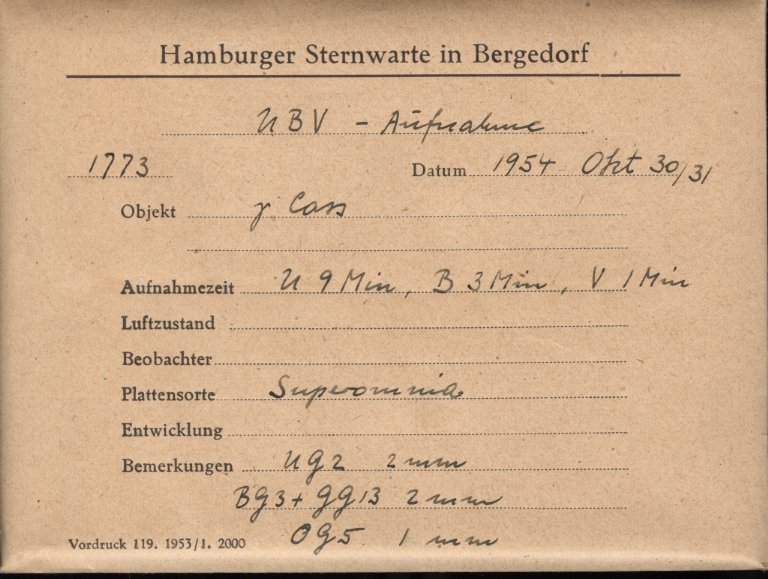 Hamburger Sternwarte in Bergedorf
UBV - Aufnahme
1773 Datum 1954 Okt 30/31
Objekt γ Cass
Aufnahmezeit U 9 Min, B 3 Min, V 1 Min
Luftzustand
Beobachter
Plattensorte Superomnia
Entwicklung
Bemerkungen UG2 2 mm
BG3 + GG13 2 mm
OG5 1 mm
Vordruck 119. 1953/1. 2000